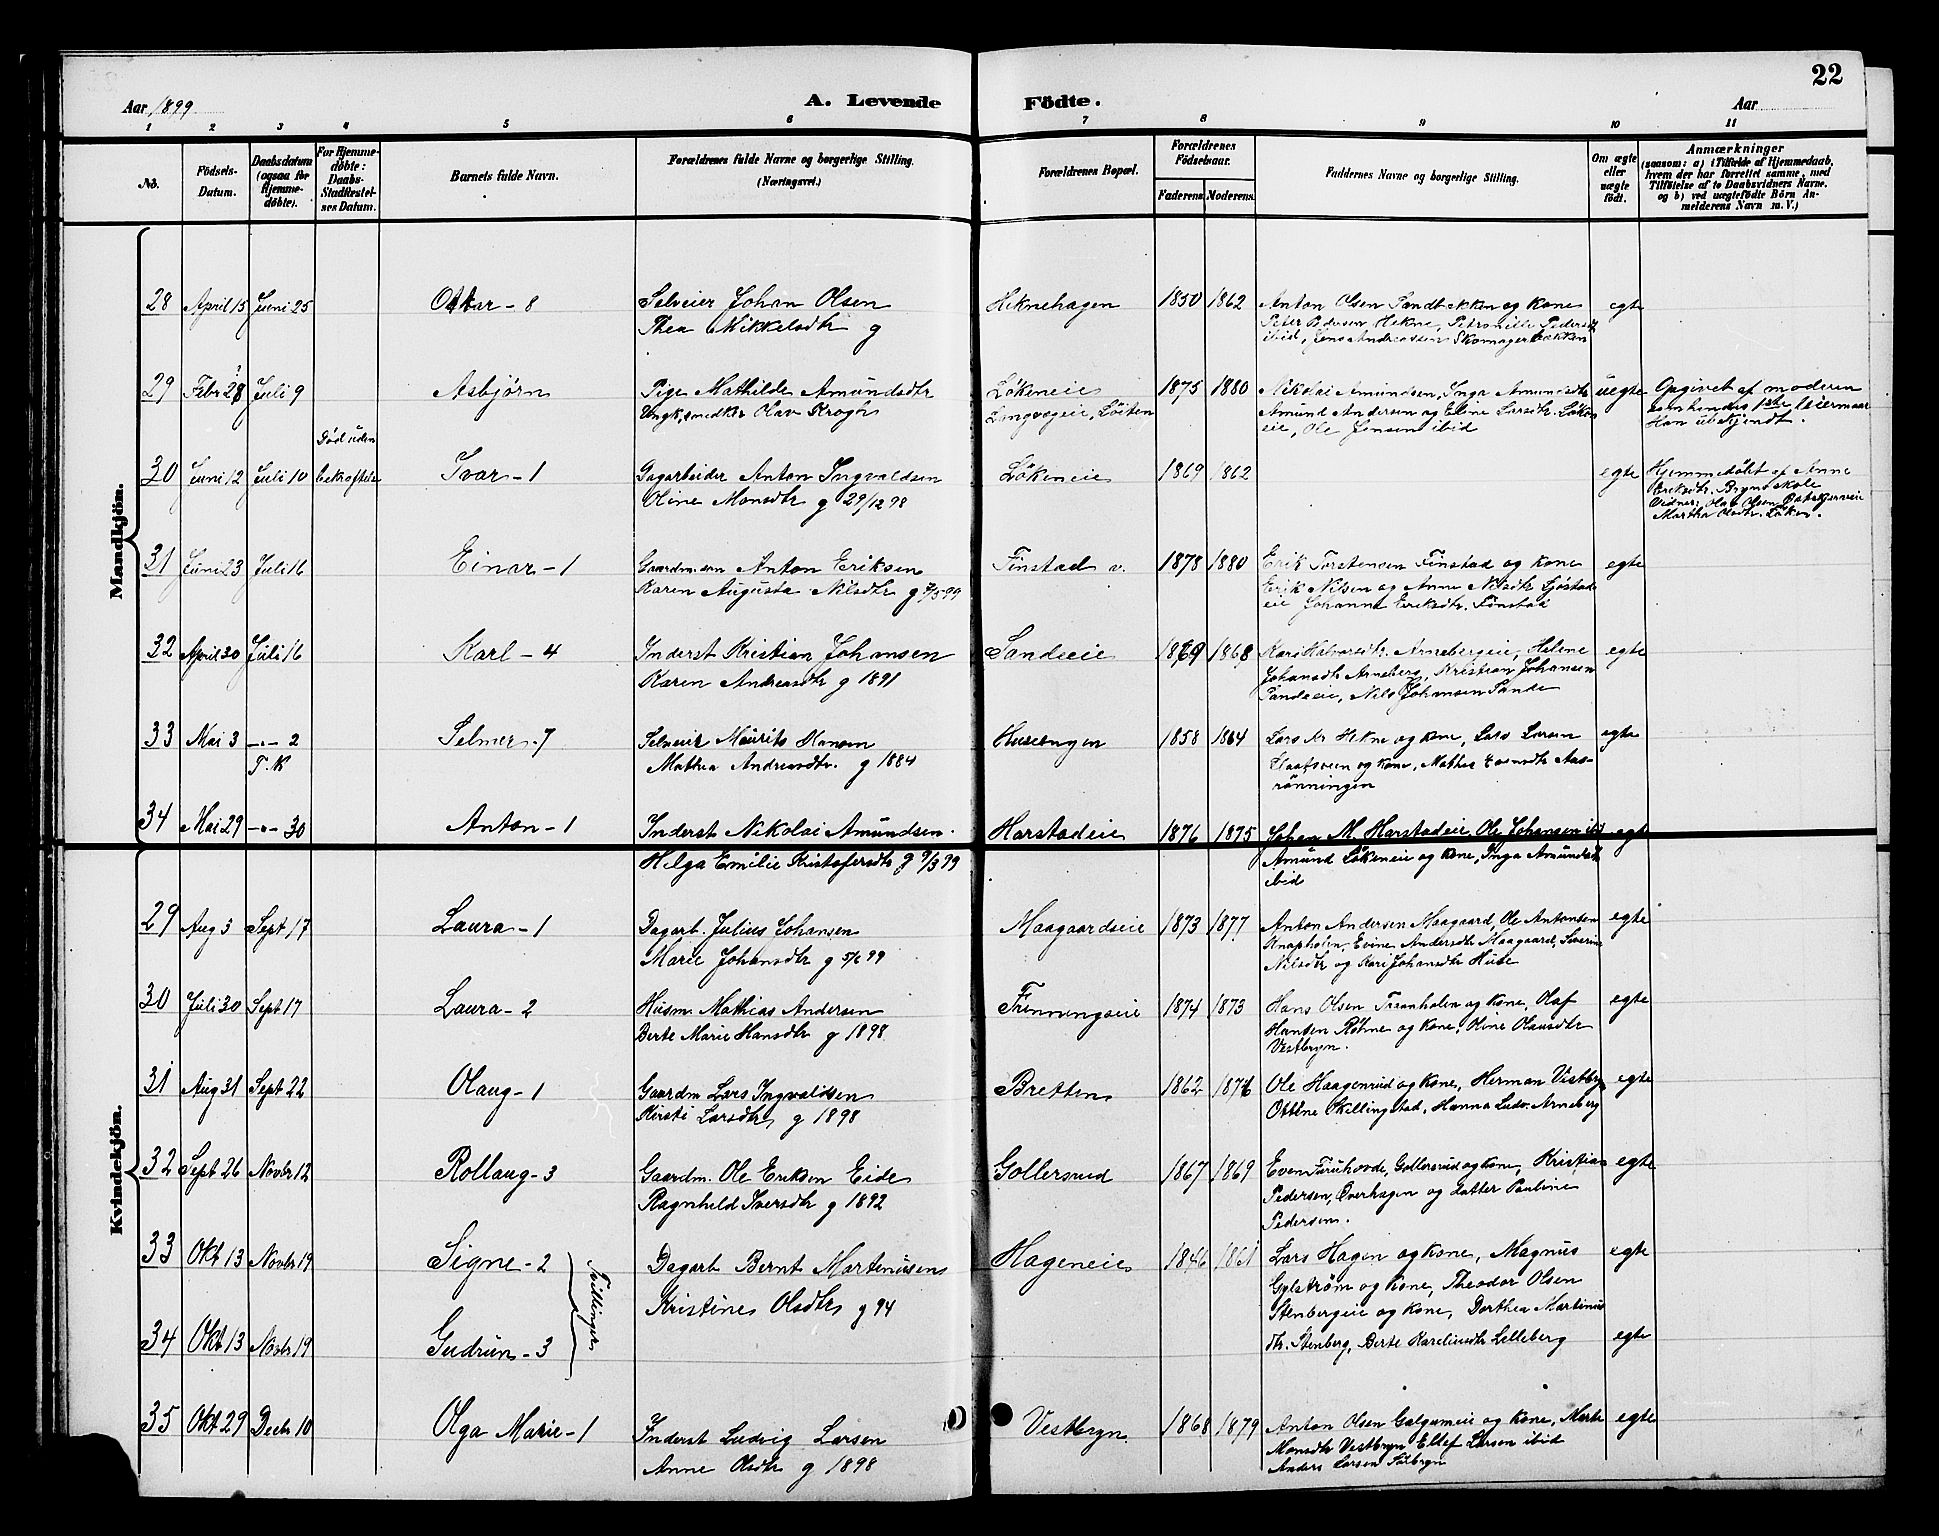 22
Aar 1899
A. Levende Födte.
Aar
1 2 3 4 5 6 7 8 9 10 11
No.
Födsels-Datum.
Daabsdatum (ogsaa for Hjemme-döbte).
For Hjemme-döbte: Daabs-Stadfæstel-ses Datum.
Barnets fulde Navn.
Forældrenes fulde Navne og borgerlige Stilling. (Næringsvei.)
Forældrenes Bopæl.
Forældrenes Födselsaar.
Faderens Moderens
Faddernes Navne og borgerlige Stilling.
Om ægte eller uægte født.
Anmærkninger
(saasom: a) i Tilfælde af Hjemmedaab, hvem der har forrettet samme, med Tilføielse af to Daabsvidners Navne, og b) ved uægtefödte Börn An-melderens Navn m. V.)
Mandkjön.
28 April 15 Juni 25 Ottar - 8 Selveier Johan Olsen Heknehagen 1850 1862 Anton Olsen Sandbakken og kone egte
Thea Mikkelsdtr g Peter Pedersen Hekne, Petronille Pedersdtr
ibid, Jens Andreassen Skomagerbakken
29 Febr 28 Juli 9 Asbjørn Pige Mathilde Amundsdtr Løkeneie 1875 1880 Nikolai Amundsen, Inga Amundsdtr uegte Opgivet af moderen
Ungk, smedker Olav Krogh Langvægeie, Løiten Amund Andersen og Eline Larsdtr. Løken som hendes 1ste leiermaal
eie, Ole Jensen ibid Han ubekjendt.
Død uden
30 Juni 12 Juli 10 bekræftelse Ivar - 1 Dagarbeider Anton Ingvaldsen Løkeneie 1869 1862 egte Hjemmedøbt af Anne
Oline Monsdtr g 29/12 98 Eriksdtr. Bryns skole
Vidner: Olav Olsen
Martha Olsdtr. Løken.
31 Juni 23 Juli 16 Einar - 1 Gaardm. søn Anton Eriksen Finstad v. 1878 1880 Erik Torstensen Finstad og kone egte
Karen Augusta Nilsdtr Erik Nilsen og Anne Nilsdtr Sjøstad
eie Johanne Eriksdtr. Finstad
32 April 30 Juli 16 Karl - 4 Inderst Kristian Johansen Sandeeie 1869 1868 Kari Halvorsdtr. Arnebergeie, Helene egte
Karen Andreasdtr g 1891 Johansdtr Arneberg, Kristian Johansen
Sandeeie, Nils Johansen Sande
33 Mai 3 -"- 2 Selmer - 7 Selveier Maurits Hansen Husesngen 1858 1864 Lars Hekne og kone, Lars Larsen egte
T. K Mathea Andreasdtr. g 1884 og kone, Mathea Aas-
rönningen
34 Mai 29 -"- 30 Anton - 1 Inderst Nikolai Amundsen. Harstadeie 1876 1875 Johan M. Harstadeie Ole Johansen ibid egte
Helga Emilie Kristofersdtr g 9/3 99 Amund Løkeneie og kone, Inga Amundsdtr
ibid
Kvindekjön.
29 Aug 3 Sept 17 Laura - 1 Dagarb. Julius Johansen Maagaardseie 1873 1877 Anton Andersen Maagaard, Ole Antonsen egte
Marie Johansdtr g 5/6 99 Knapholen, Evine Andersdtr Maagaard, Severine
Nilsdtr og Kari Johansdtr Huse
30 Juli 30 Sept 17 Laura - 2 Husm. Mathias Andersen Frenningseie 1874 1873 Hans Olsen Traanholen og kone, Olaf egte
Berte Marie Hansdtr g 1898 Hansen Røhne og kone, Oline Olausdtr
Vestbryn.
31 Aug 31 Sept 22 Olaug - 1 Gaardm Lars Ingvaldsen Bretten 1862 1876 Ole Haagenrud og kone, Herman Vestbryn egte
Kirsti Larsdtr g 1898 Ottine Skillingstad, Hanna Ludv. Arneberg
32 Sept 26 Novbr 12 Rollaug - 3 Gaardm. Ole Eriksen Eide Gollersrud 1867 1869 Even Furuhovde, Gollersrud og kone, Kristian egte
Ragnhild Iversdtr g 1892 Pedersen, Øverhagen og datter Pauline
Pedersen.
33 Okt 13 Novbr 19 Signe - 2 Tvillinger Dagarb Bernt Martenusen Hageneie 1846 1861 Lars Hagen og kone, Magnus egte
Kristine Olsdtr g 94 Gylstrøm og kone, Theodor Olsen
Stenbergeie og kone, Dorthea Martinus
34 Okt 13 Novbr 19 Gudrun - 3 dtr. Stenberg, Berte Kareliusdtr Lilleberg egte
35 Okt 29 Decbr 10 Olga Marie - 1 Inderst Ludvig Larsen Vestbryn. 1868 1879 Anton Olsen Galgumeie og kone, Marte egte
Anne Olsdtr g 1898 Monsdtr Vestbryn Ellef Larsen ibid
Anders Larsen